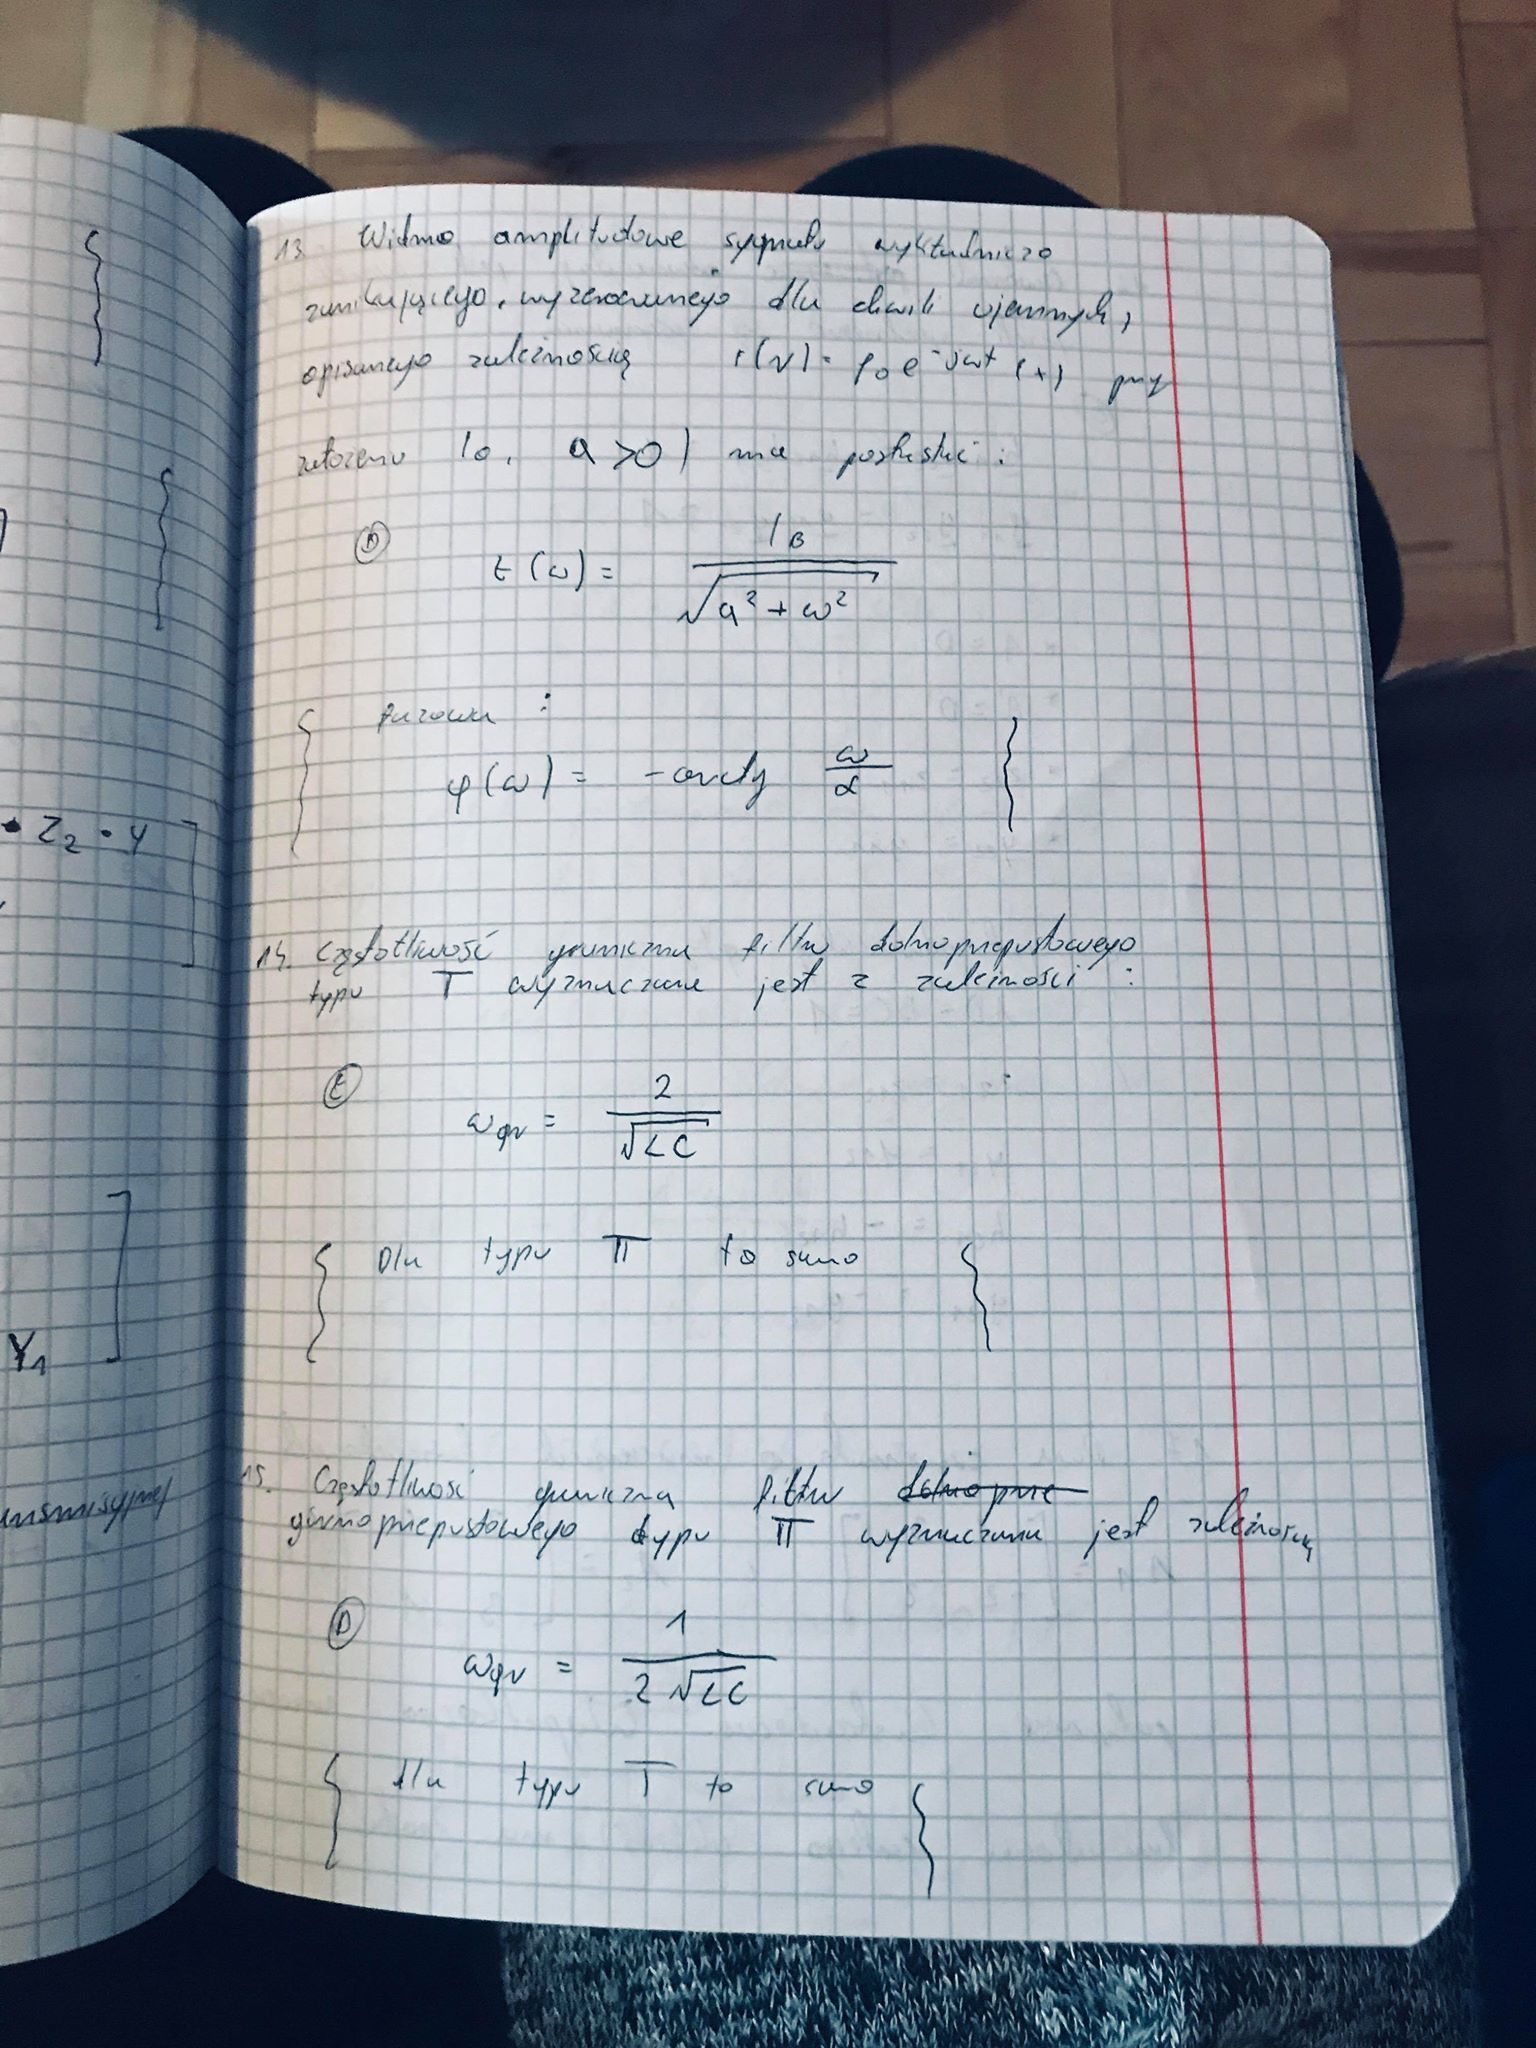 • Z₂ • Y
Y₁
13. Widmo amplitudowe sygnału wykładniczo
zanikającego, wyzerowanego dla chwili ujemnych,
opisanego zależnością e^-jωt (+) przy
założeniu a > 0 ) ma postać :
(ω) = I₀ / √(a² + ω²)
fazowa :
φ(ω) = - arctg ω/α
14. Częstotliwość graniczna filtru dolnoprzepustowego
typu T wyznaczana jest z zależności :
ω_gr = 2 / √(LC)
Dla typu Π to samo
15. Częstotliwość graniczna filtru dolnoprze
górnoprzepustowego typu Π wyznaczana jest zależnością
Ⓓ ω_gr = 1 / (2 √(LC))
dla typu T to samo